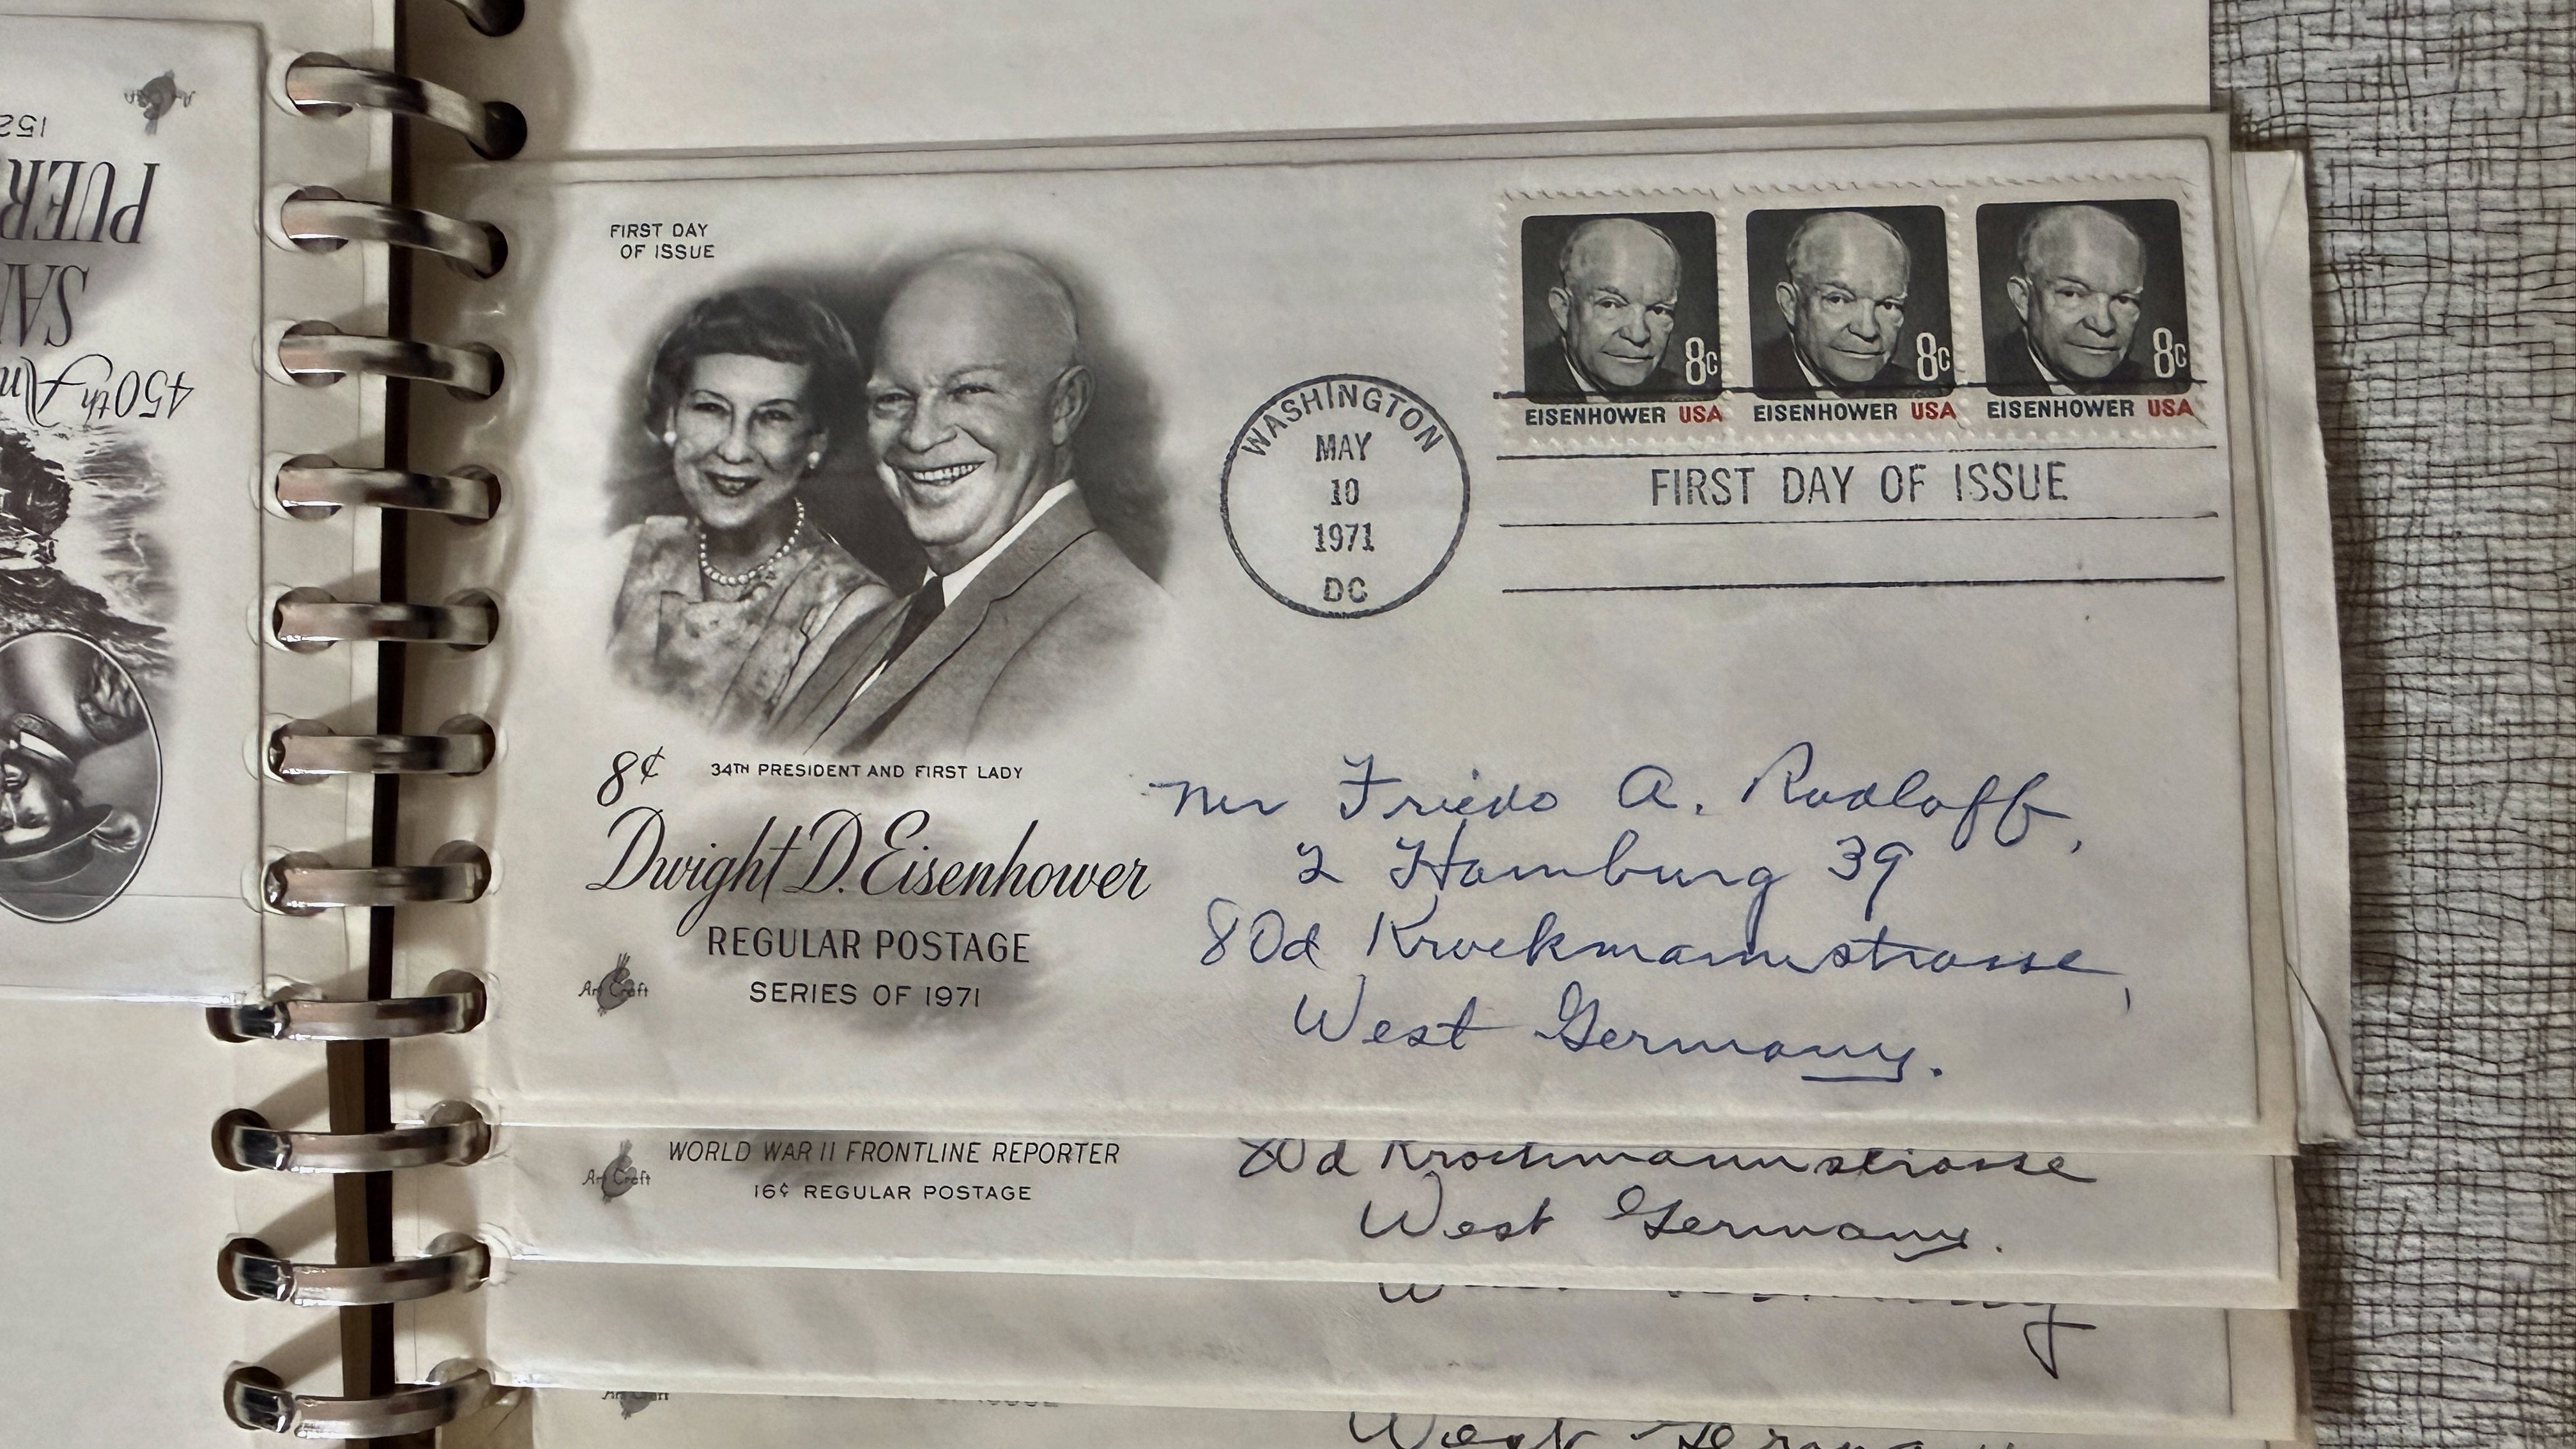 152
PUER
SAN
450th An
FIRST DAY
OF ISSUE
8c 8c 8c
EISENHOWER USA EISENHOWER USA EISENHOWER USA
WASHINGTON
MAY
10
1971
DC
FIRST DAY OF ISSUE
8¢ 34TH PRESIDENT AND FIRST LADY
Dwight D. Eisenhower
REGULAR POSTAGE
SERIES OF 1971
Art Craft
Mr Friedo A. Radloff,
2 Hamburg 39
80d Krochmannstrasse,
West Germany.
WORLD WAR II FRONTLINE REPORTER
16¢ REGULAR POSTAGE
Art Craft
80d Krochmannstrasse
West Germany.
Art Craft
West Germany